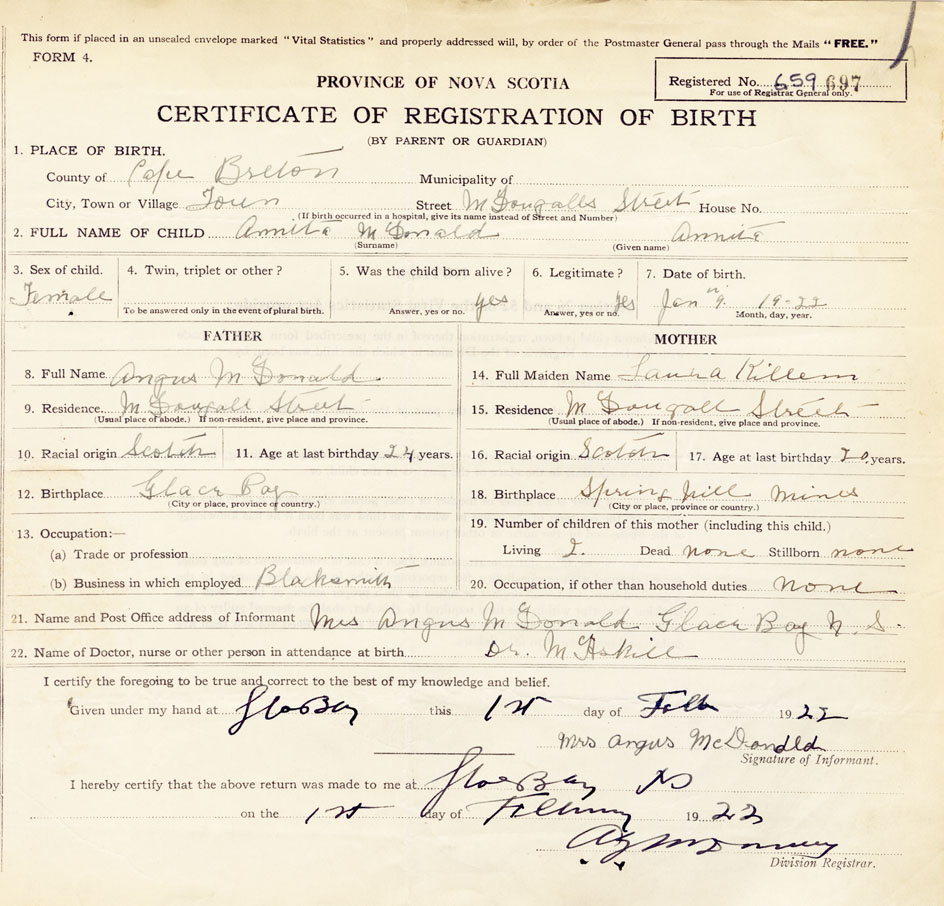 This form if placed in an unsealed envelope marked "Vital Statistics" and properly addressed will, by order of the Postmaster General pass through the Mails "FREE."
FORM 4.
PROVINCE OF NOVA SCOTIA
Registered No. 659 697
For use of Registrar General only.
CERTIFICATE OF REGISTRATION OF BIRTH
(BY PARENT OR GUARDIAN)
1. PLACE OF BIRTH.
County of Cape Breton Municipality of
City, Town or Village Town Street McDougalls Street House No.
(If birth occurred in a hospital, give its name instead of Street and Number)
2. FULL NAME OF CHILD Annita McDonald Annita
(Surname) (Given name)
3. Sex of child. 4. Twin, triplet or other? 5. Was the child born alive? 6. Legitimate? 7. Date of birth.
Female yes yes Jan 9 19-22
To be answered only in the event of plural birth. Answer, yes or no. Answer, yes or no. Month, day, year.
FATHER MOTHER
8. Full Name Angus McDonald 14. Full Maiden Name Laura Killem
9. Residence McDougall Street 15. Residence McDougall Street
(Usual place of abode.) If non-resident, give place and province. (Usual place of abode.) If non-resident, give place and province.
10. Racial origin Scotch 11. Age at last birthday 24 years. 16. Racial origin Scotch 17. Age at last birthday 20 years.
12. Birthplace Glace Bay 18. Birthplace Spring hill Mines
(City or place, province or country.) (City or place, province or country.)
13. Occupation:— 19. Number of children of this mother (including this child.)
(a) Trade or profession Living Dead none Stillborn none
(b) Business in which employed Blaksmith 20. Occupation, if other than household duties none
21. Name and Post Office address of Informant Mrs Angus McDonald Glace Bay N. S.
22. Name of Doctor, nurse or other person in attendance at birth Dr. McAskill
I certify the foregoing to be true and correct to the best of my knowledge and belief.
Given under my hand at Glace Bay this 1st day of Feb 1922
Mrs Angus McDonald
Signature of Informant.
I hereby certify that the above return was made to me at Glace Bay NS
on the 1st day of February 1922
Division Registrar.